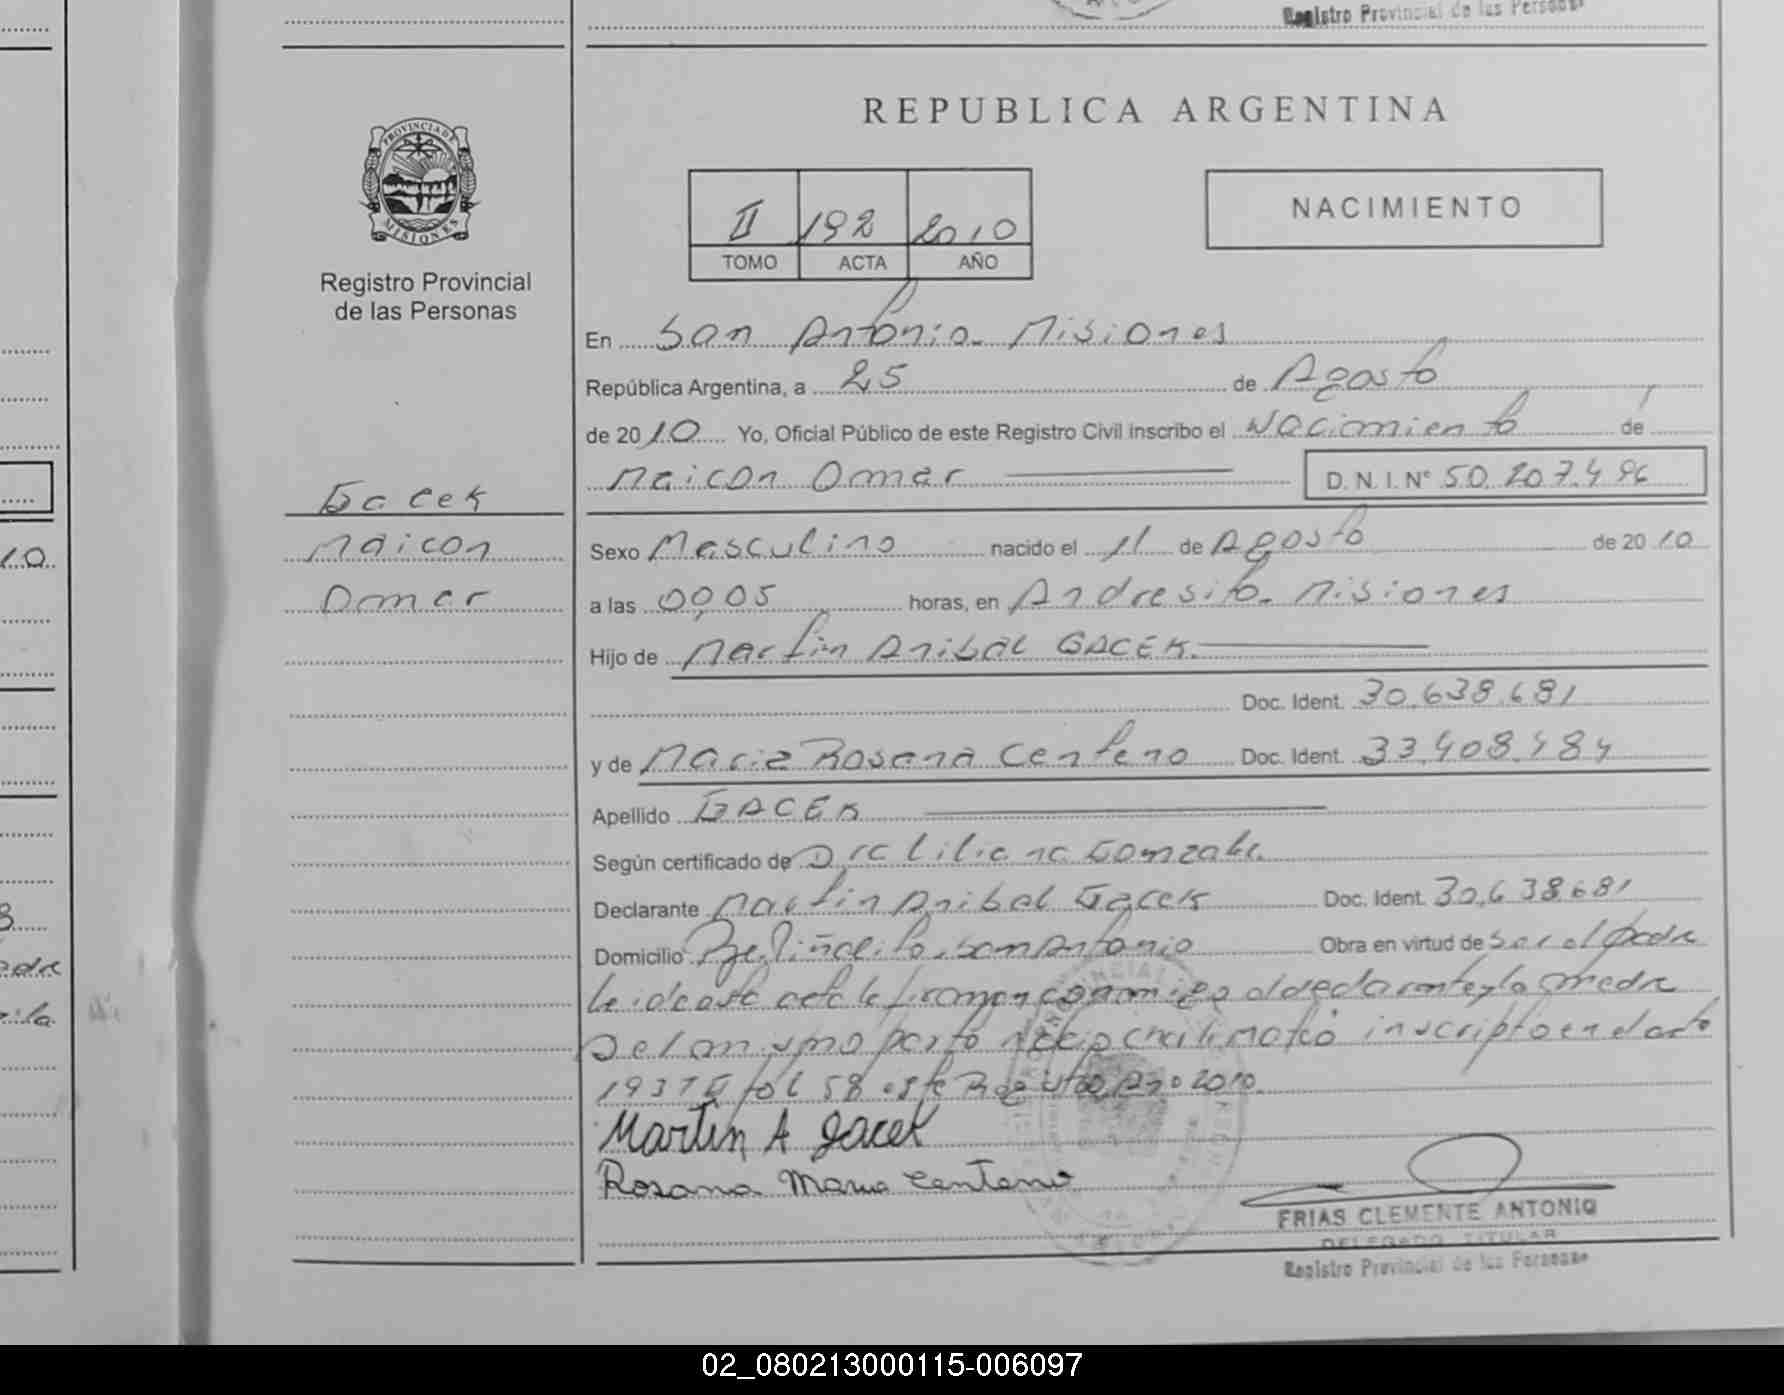 Registro Provincial de las Personas
REPUBLICA ARGENTINA
PROVINCIA DE
MISIONES
Registro Provincial
de las Personas
II 192 2010
TOMO ACTA AÑO
NACIMIENTO
En San Antonio. Misiones
República Argentina, a 25 de Agosto
de 2010 Yo, Oficial Público de este Registro Civil inscribo el Nacimiento de
Maicon Omar D.N.I. Nº 50.207.496
Gacek
Maicon
Omar
Sexo Masculino nacido el 11 de Agosto de 2010
a las 00,05 horas, en Andresito. Misiones
Hijo de Martin Anibal GACEK
Doc. Ident. 30.638.681
y de Maria Rosana Centeno Doc. Ident. 33.408.484
Apellido GACEK
Según certificado de Dra Liliana Gonzalez
Declarante Martin Anibal Gacek Doc. Ident. 30.638.681
Domicilio Piñalito. San Antonio Obra en virtud de Ser el padre
Leida esta acta la firman conmigo el declarante y la madre
Del mismo parto nacio inscripto en el acta
193 T II fol 58 este Registro Año 2010.
Martin A Gacek
Rosana Maria Centeno
FRIAS CLEMENTE ANTONIO
DELEGADO TITULAR
Registro Provincial de las Personas
02_080213000115-006097